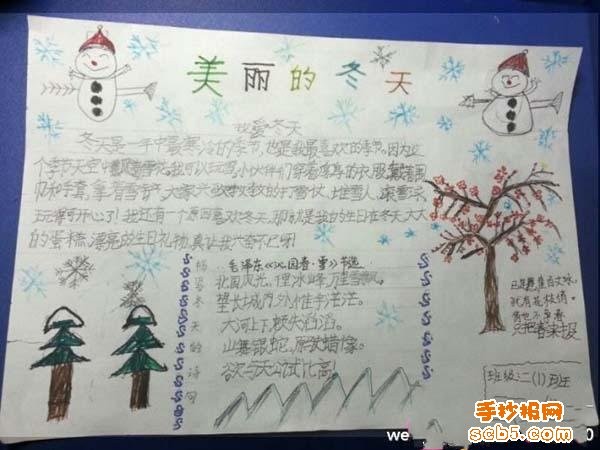 美丽的冬天
我爱冬天
冬天是一年中最寒冷的季节,也是我最喜欢的季节。因为这
个季节天空中飘着雪花,我可以玩雪,小伙伴们穿着厚厚的衣服,戴着围
巾和手套,拿着雪铲,大家兴致勃勃的打雪仗、堆雪人、滚雪球,
玩得可开心了!我还有一个原因喜欢冬天,那就是我的生日在冬天,大大
的蛋糕,漂亮的生日礼物,真让我兴奋不已呀!
毛泽东《沁园春·雪》节选
北国风光,千里冰封,万里雪飘。
望长城内外,惟余莽莽。
大河上下,顿失滔滔。
山舞银蛇,原驰蜡像。
欲与天公试比高。
冬天的诗句
已是悬崖百丈冰,
犹有花枝俏。
俏也不争春
只把春来报
班级:二(1)班
手抄报网
scb5.com
we
0